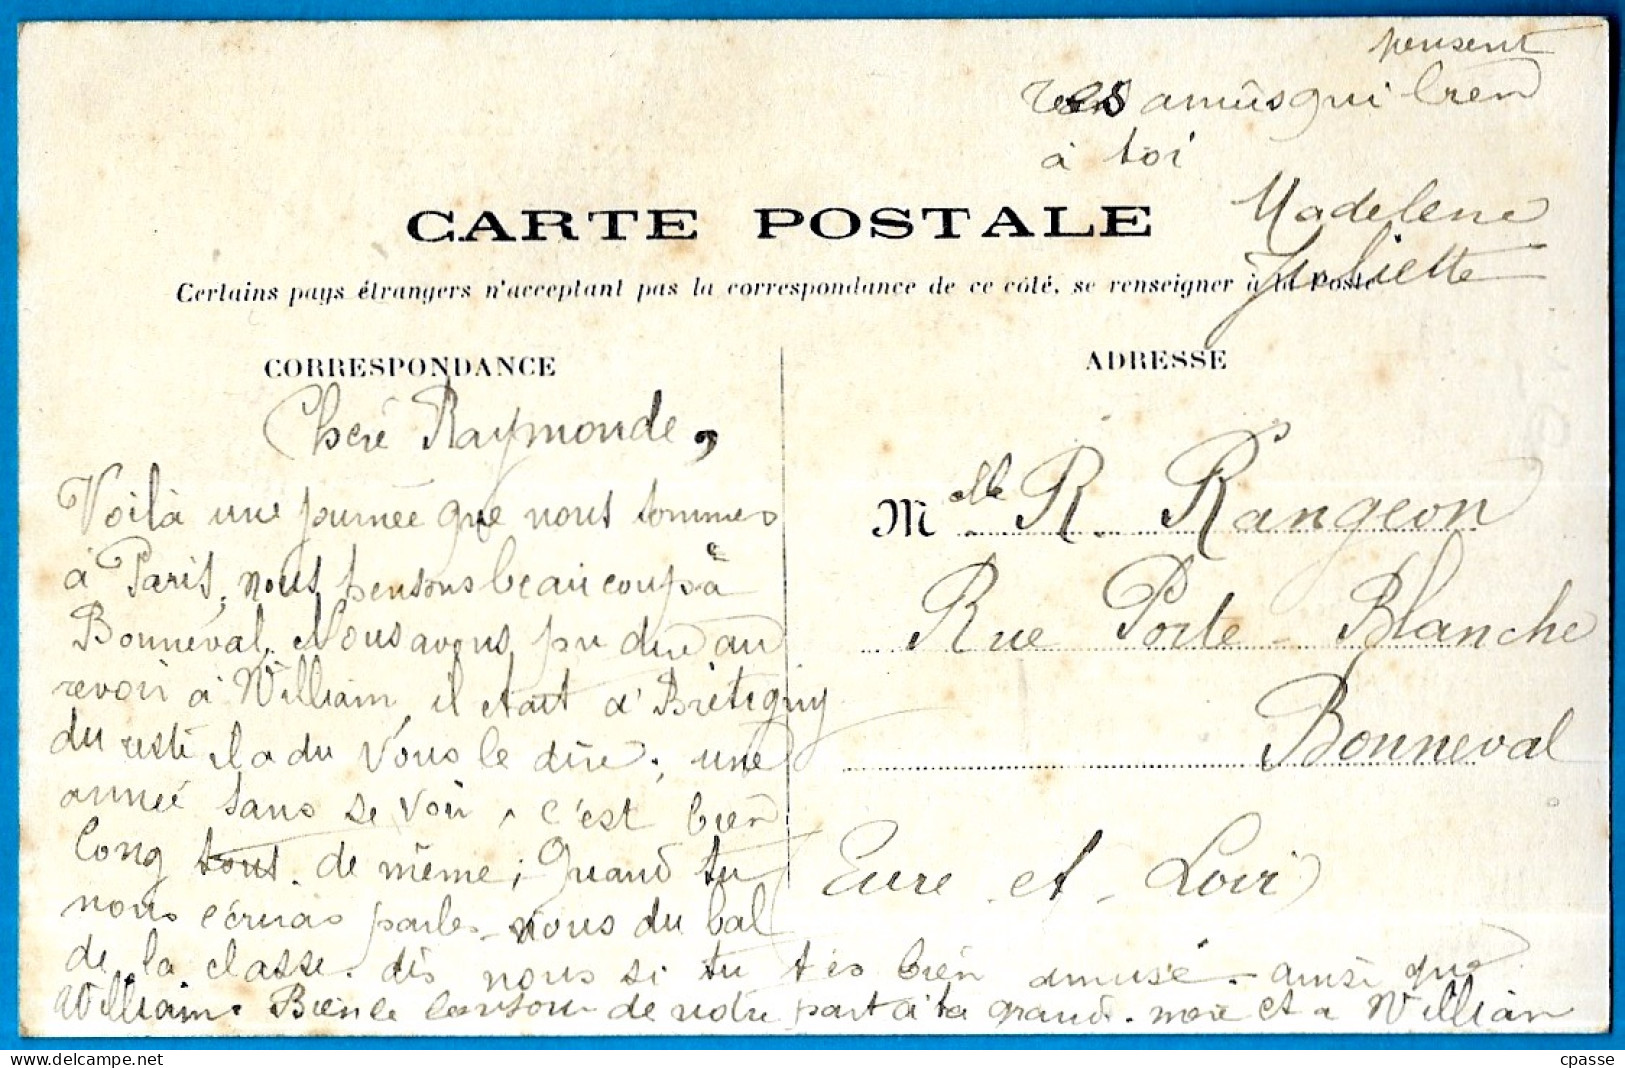 pensent
tes amiis qui bien
à toi
Madelene
Juliette
CARTE POSTALE
Certains pays étrangers n'acceptant pas la correspondance de ce côté, se renseigner à la Poste
CORRESPONDANCE
ADRESSE
Cheré Raymonde,
Voilà une journée que nous sommes
à Paris, nous pensons beaucoup à
Bonneval. Nous avons pu dire au
revoir à William, il etait à Brétigny
du resté il a du vous le dire; une
anneé sans se voir, c'est bien
long tout. de même; Quand tu
nous écriras parles-nous du bal
de la classe. dis nous si tu tes bien amusé. ainsi que
William. Bien le bonjour de notre part à ta grand-mère et a William
Melle R. Rangeon
Rue Porte-Blanche
Bonneval
Eure-et-Loir
cpasse